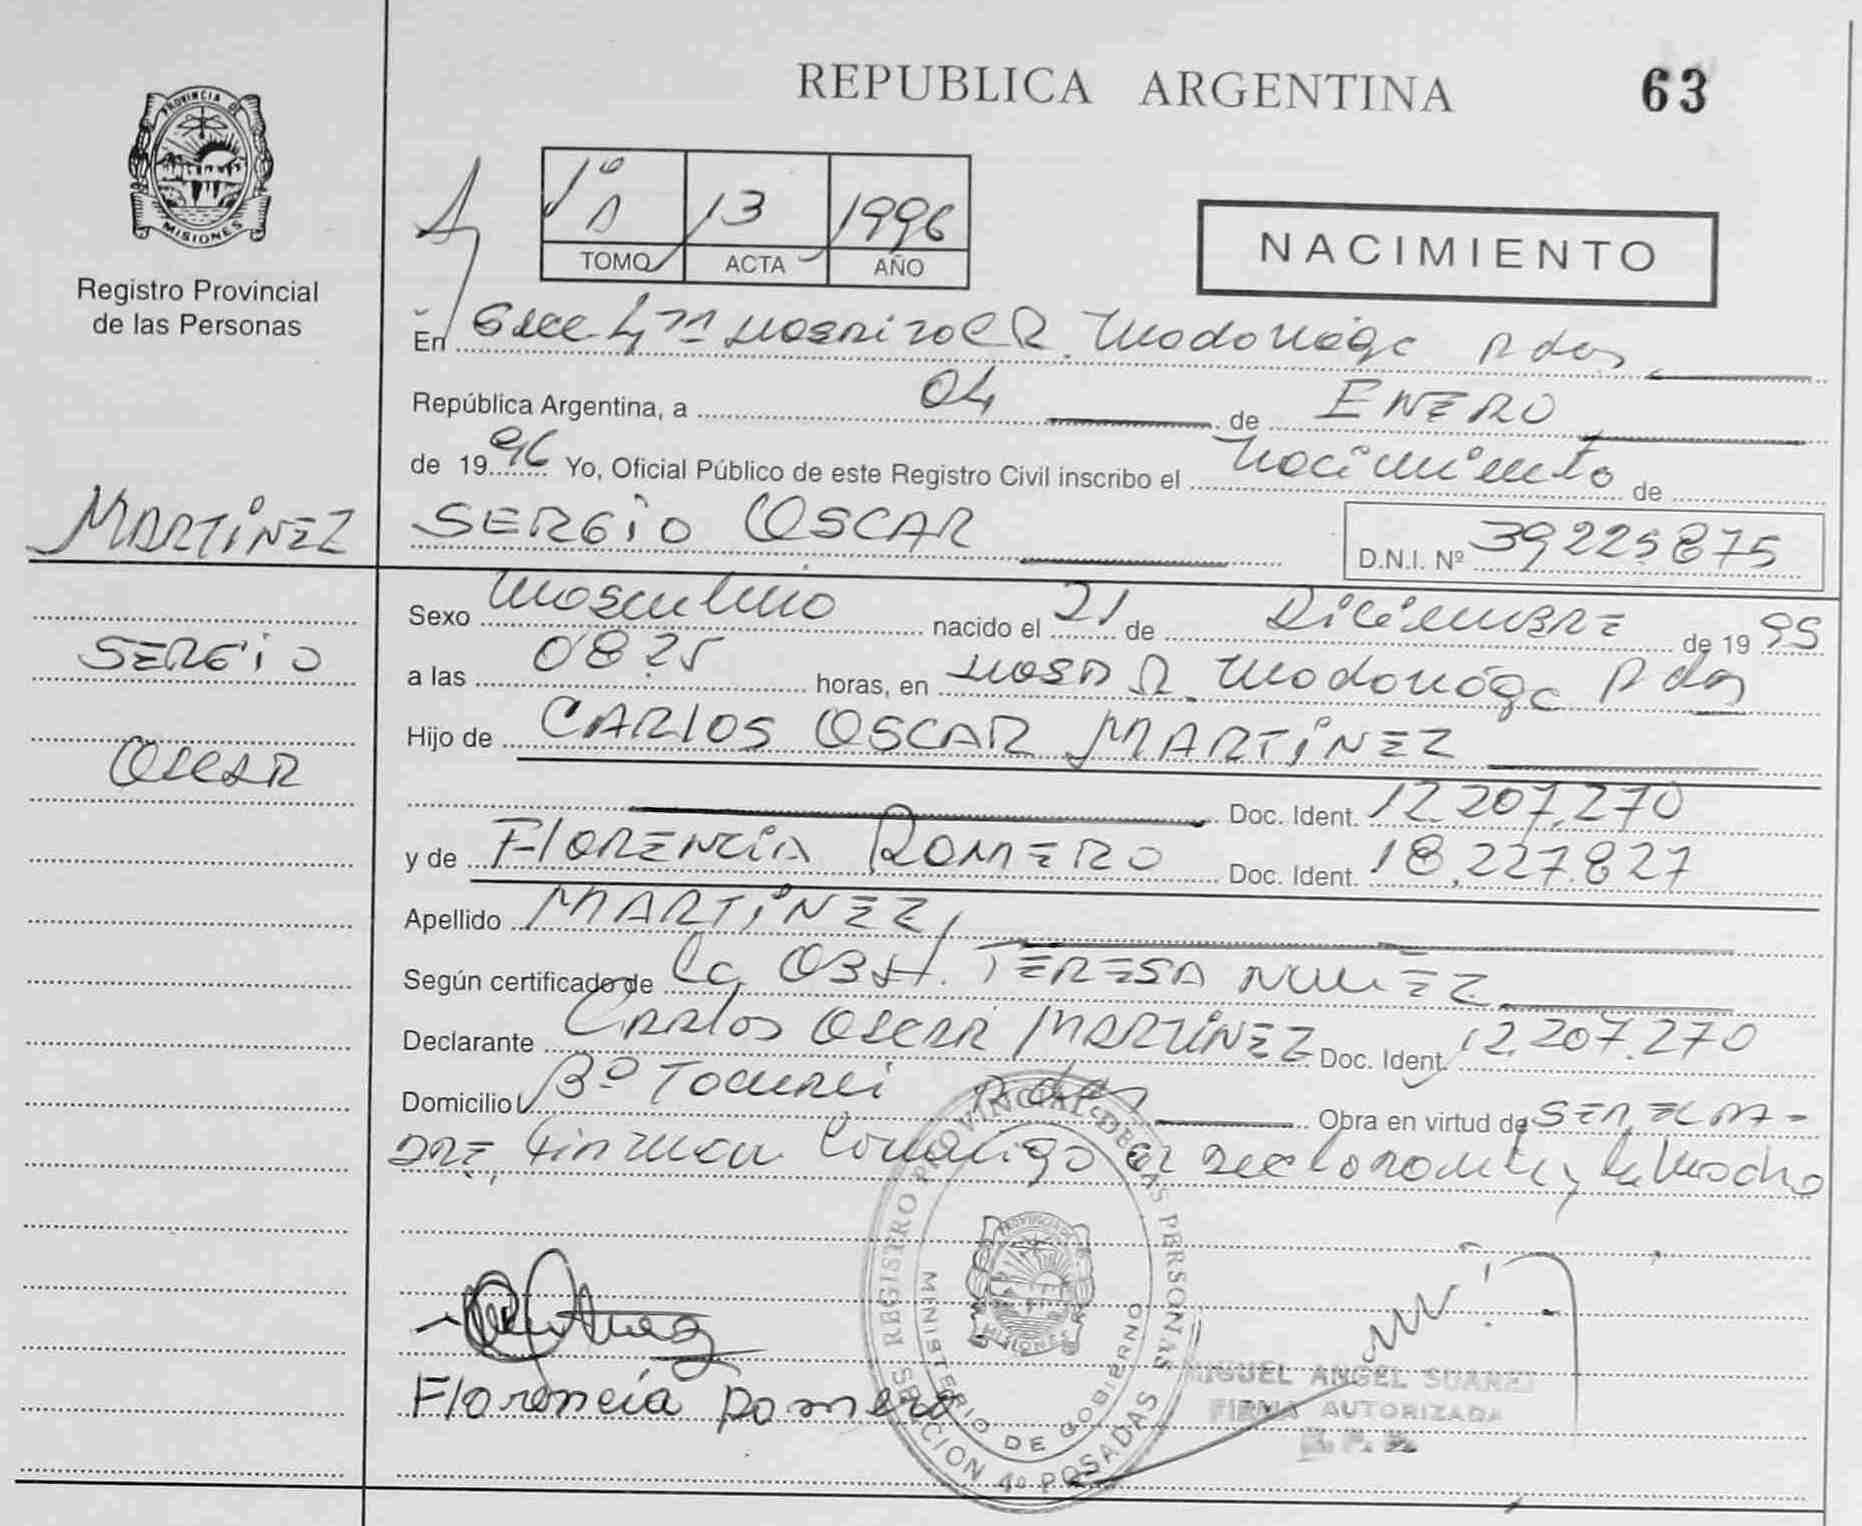 PROVINCIA DE
MISIONES
Registro Provincial
de las Personas
REPUBLICA ARGENTINA 63
1º A 13 1996
TOMO ACTA AÑO
NACIMIENTO
En Secc 4ta Hospital R. Madariaga Pdas
República Argentina, a 04 de ENERO
de 1996 Yo, Oficial Público de este Registro Civil inscribo el Nacimiento de
MARTINEZ SERGIO OSCAR D.N.I. Nº 39225875
SERGIO
OSCAR
Sexo Masculino nacido el 21 de Diciembre de 1995
a las 08.25 horas, en Hosp R. Madariaga Pdas
Hijo de CARLOS OSCAR MARTINEZ
Doc. Ident. 12.207.270
y de FLORENCIA ROMERO Doc. Ident. 18.227.827
Apellido MARTINEZ
Según certificado de la OBST. TERESA NUÑEZ
Declarante CARLOS OSCAR MARTINEZ Doc. Ident. 12.207.270
Domicilio Bº Tacurú Pdas Obra en virtud de SER EL PA-
DRE, firman conmigo el declarante y la Madre
Florencia Romero
REGISTRO PROVINCIAL DE LAS PERSONAS
SECCION 4º POSADAS
MINISTERIO DE GOBIERNO
PROVINCIA DE
MISIONES
MIGUEL ANGEL SUAREZ
FIRMA AUTORIZADA